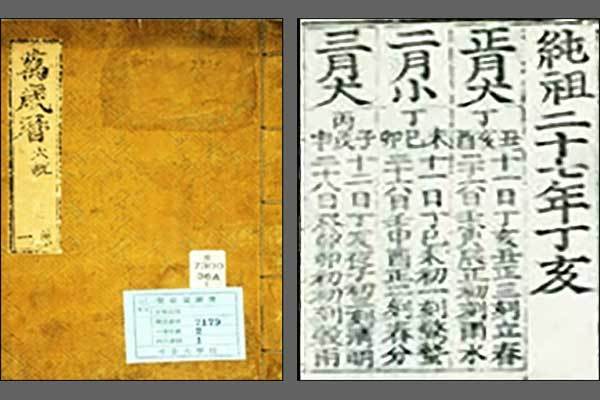 萬歲曆
一
7300
36A
7179
2
1
純祖二十七年丁亥
正月大
丁
丑亥酉
十一日丁亥丑正三刻立春
二十六日壬寅辰正初刻雨水
二月小
丁
未巳卯
十一日丁巳未初一刻驚蟄
二十六日壬申酉正二刻春分
三月大
丙
子戌申
十二日丁亥夜子初刻清明
二十八日癸卯卯初初刻穀雨